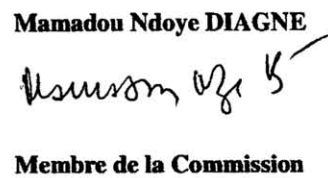 Mamadou Ndoye DIAGNE
Membre de la Commission